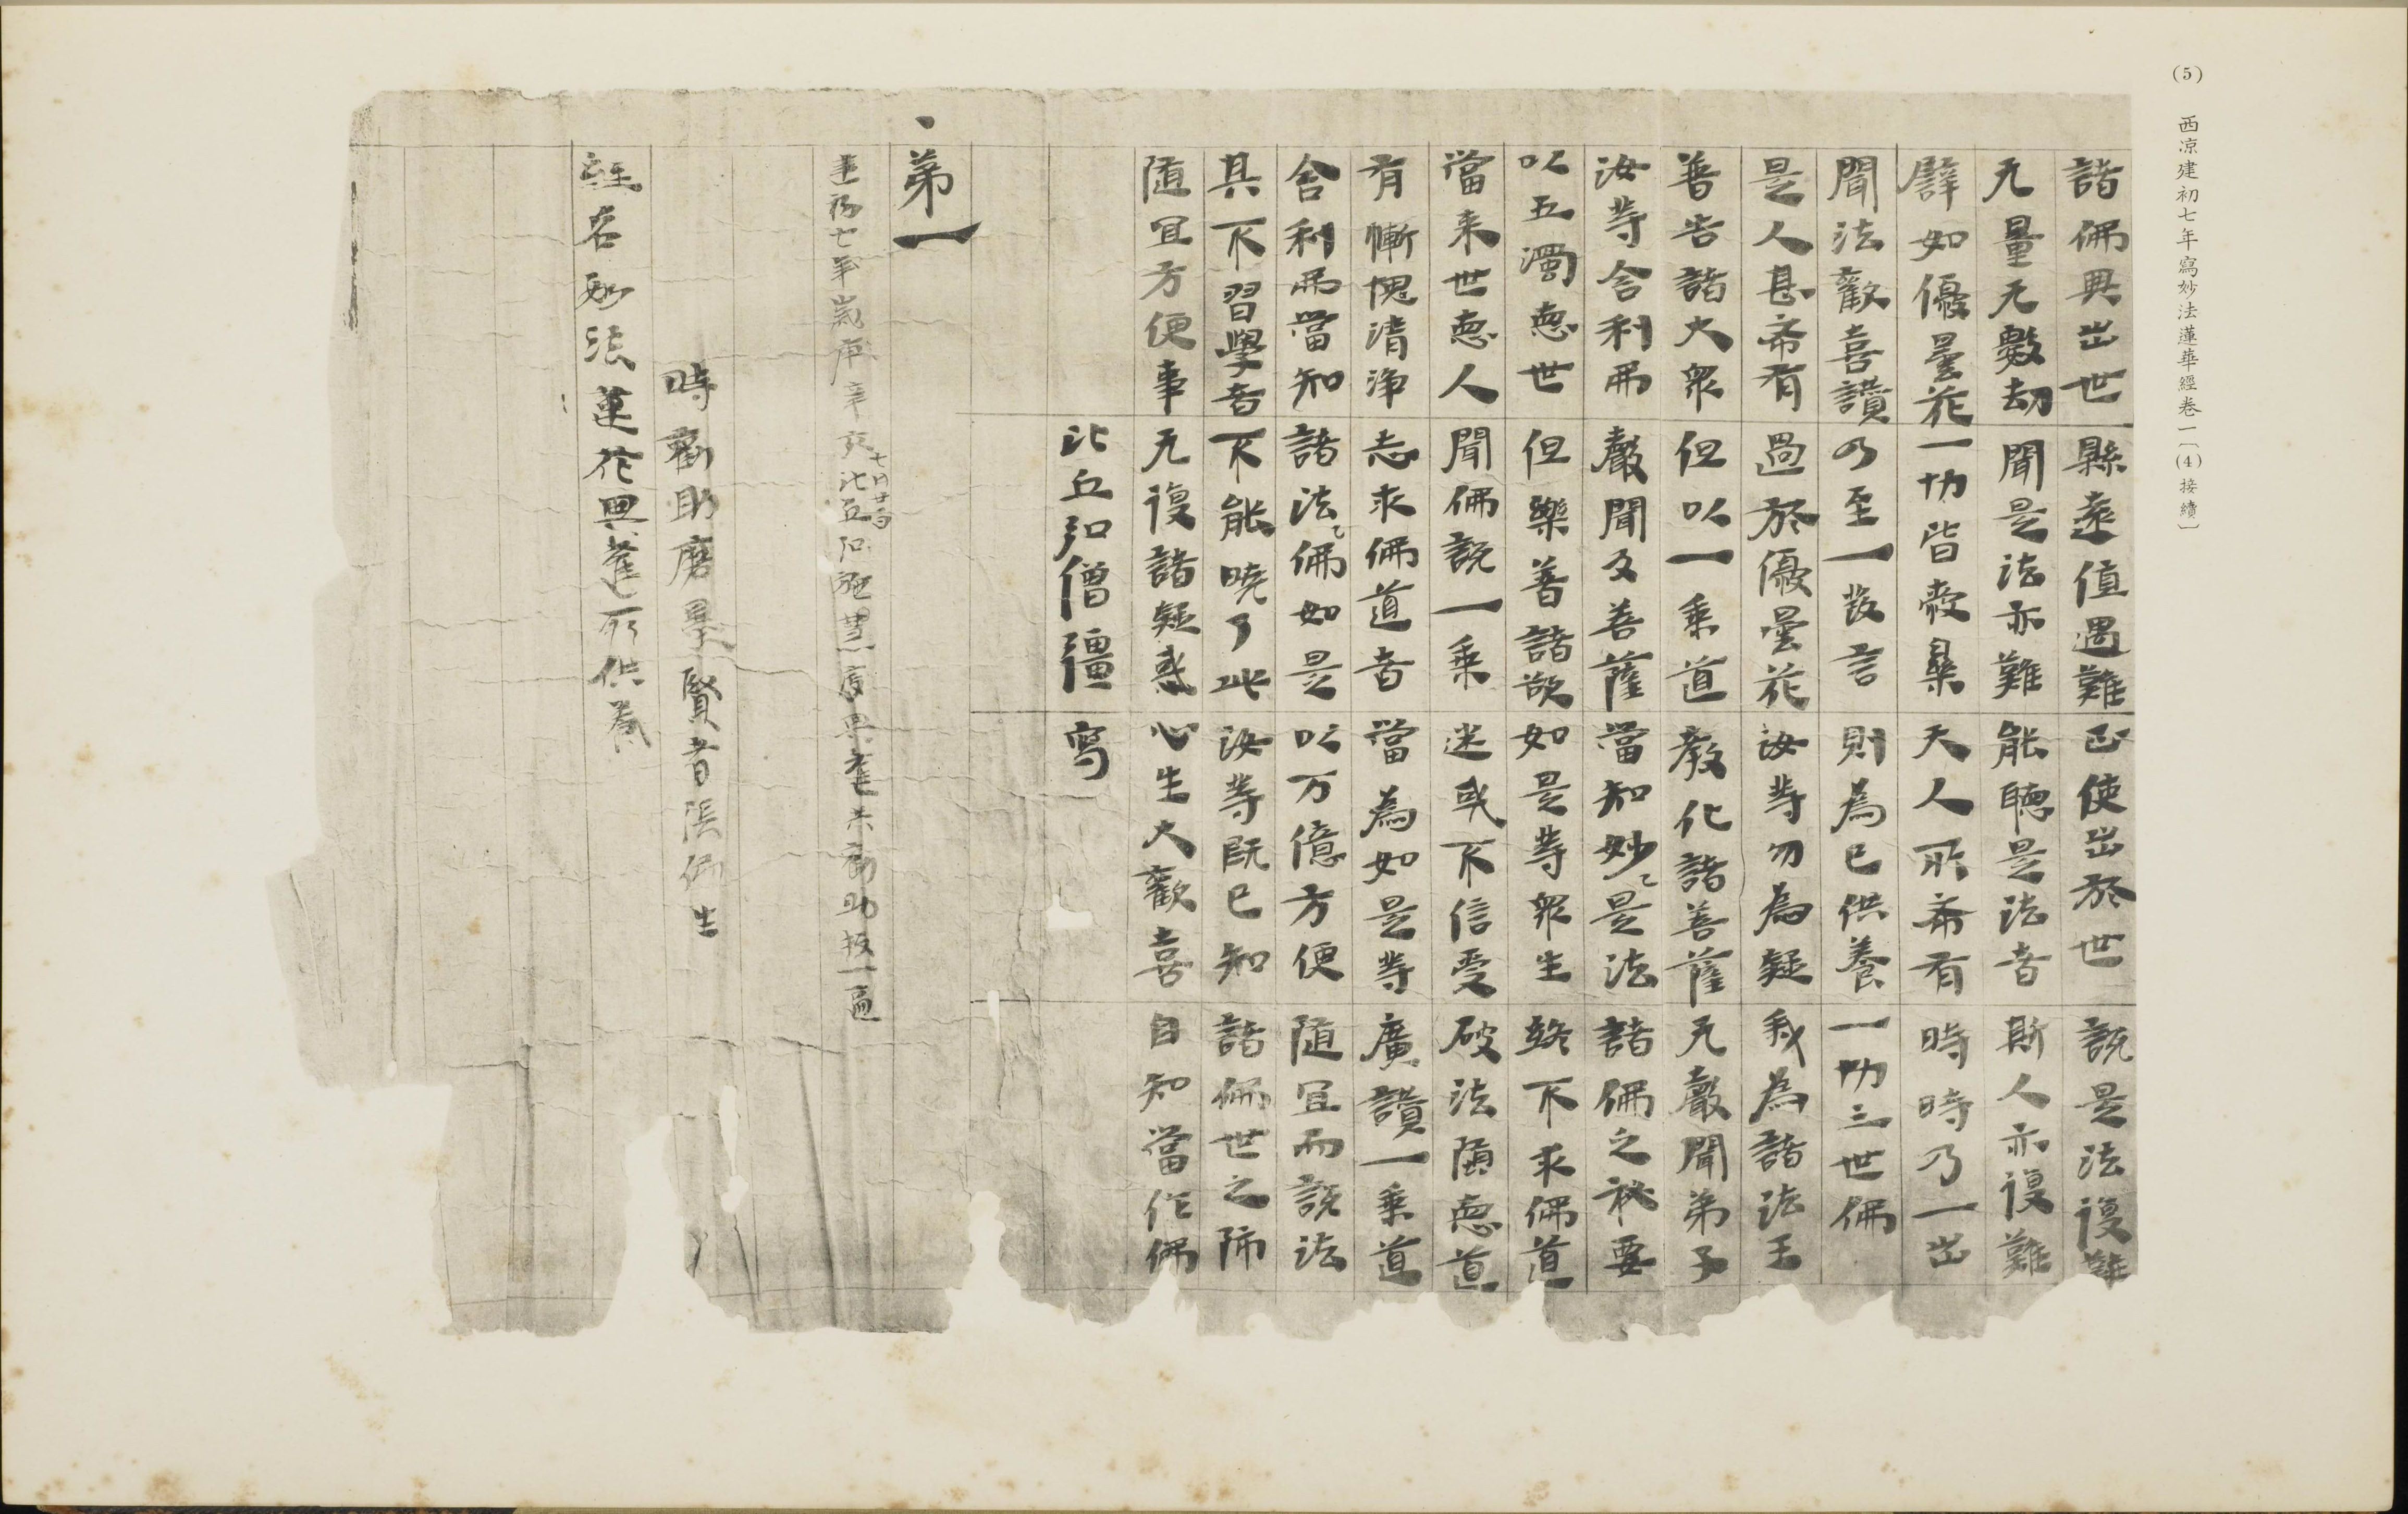 (5) 西凉建初七年寫妙法蓮華經卷一〔(4)接續〕
諸佛興出世 縣遠值遇難 正使出於世 説是法復難
无量无數劫 聞是法亦難 能聴是法者 斯人亦復難
譬如優曇花 一切皆愛樂 天人所希有 時時乃一出
聞法歡喜讚 乃至一發言 則為已供養 一切三世佛
是人甚希有 過於優曇花 汝等勿為疑 我為諸法王
普告諸大衆 但以一乗道 教化諸菩薩 无聲聞弟子
汝等舍利弗 聲聞及菩薩 當知妙〻是法 諸佛之祕要
以五濁惡世 但樂著諸欲 如是等衆生 終不求佛道
當来世惡人 聞佛説一乗 迷或不信受 破法墮惡道
有慚愧清浄 志求佛道者 當為如是等 廣讚一乗道
舍利弗當知 諸法〻佛如是 以万億方便 隨宜而説法
其不習學者 不能曉了此 汝等既已知 諸佛世之師
隨宜方便事 无復諸疑惑 心生大歡喜 自知當作佛
比丘弘僧彊寫
第一
建初七年歳辰辛亥七月廿一日比丘弘施慧度興達共勸助校一遍
時勸助磨墨賢者張佛生
經名妙法蓮花興達所供養